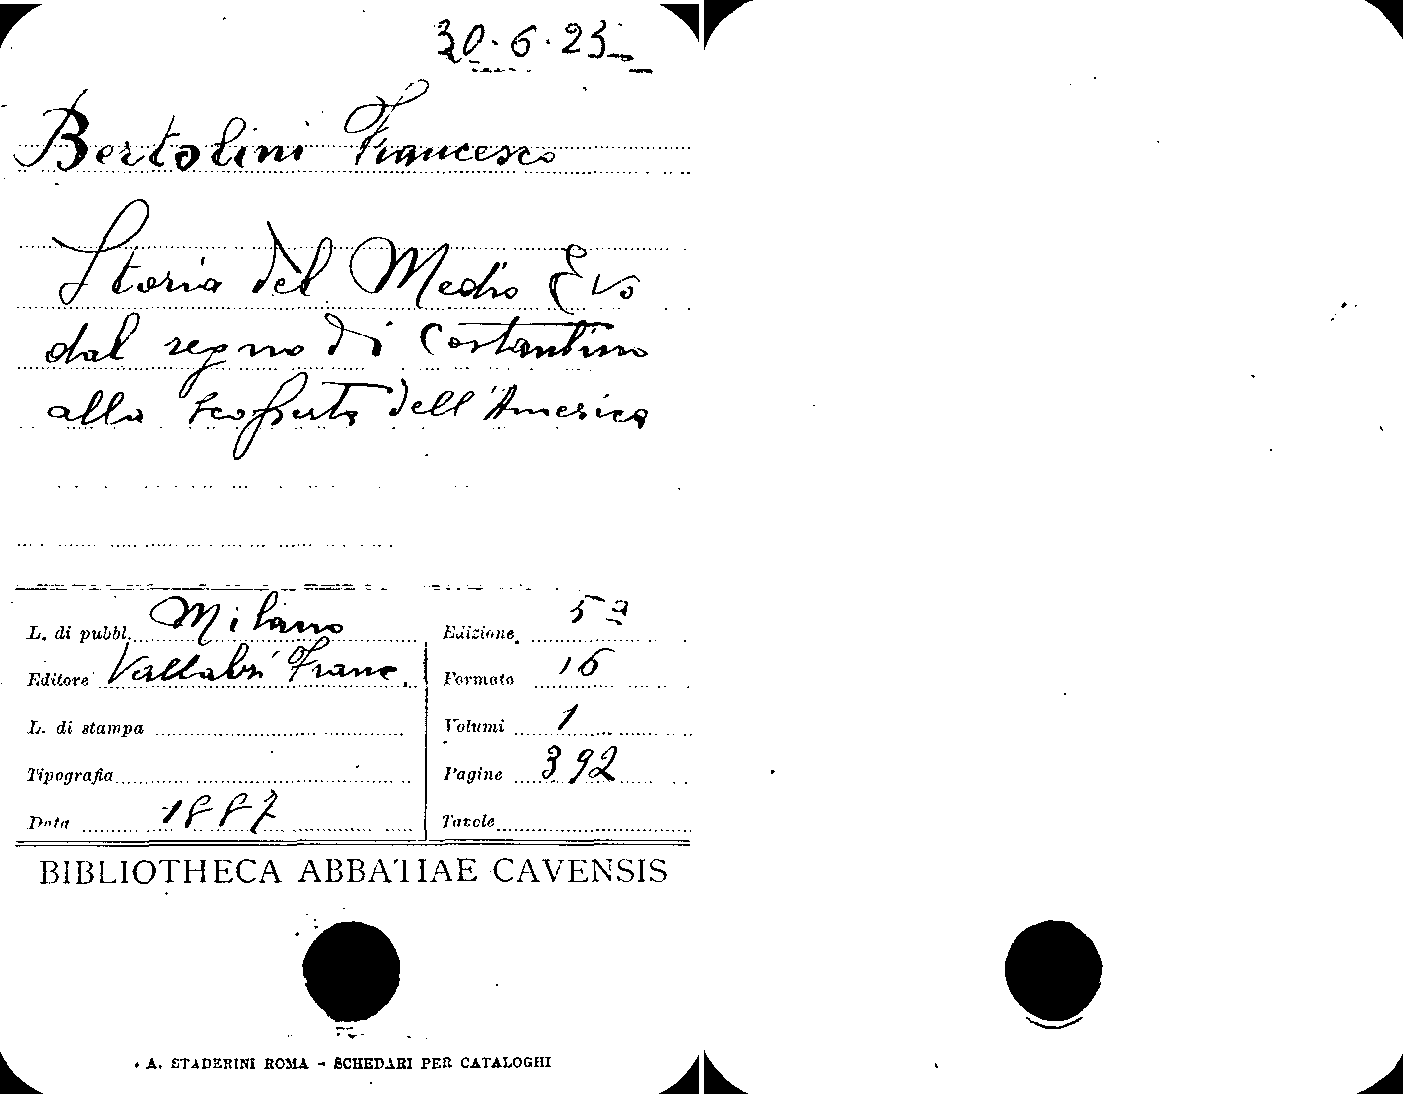 30.6.23
Bertolini Francesco
Storia del Medio Evo
dal regno di Costantino
alla scoperta dell'America
L. di pubbl. Milano
Edizione 5ª
Editore Vallardi Franc.
Formato 16
L. di stampa
Volumi 1
Tipografia
Pagine 392
Data 1887
Tavole
BIBLIOTHECA ABBATIAE CAVENSIS
A. STADERINI ROMA - SCHEDARI PER CATALOGHI